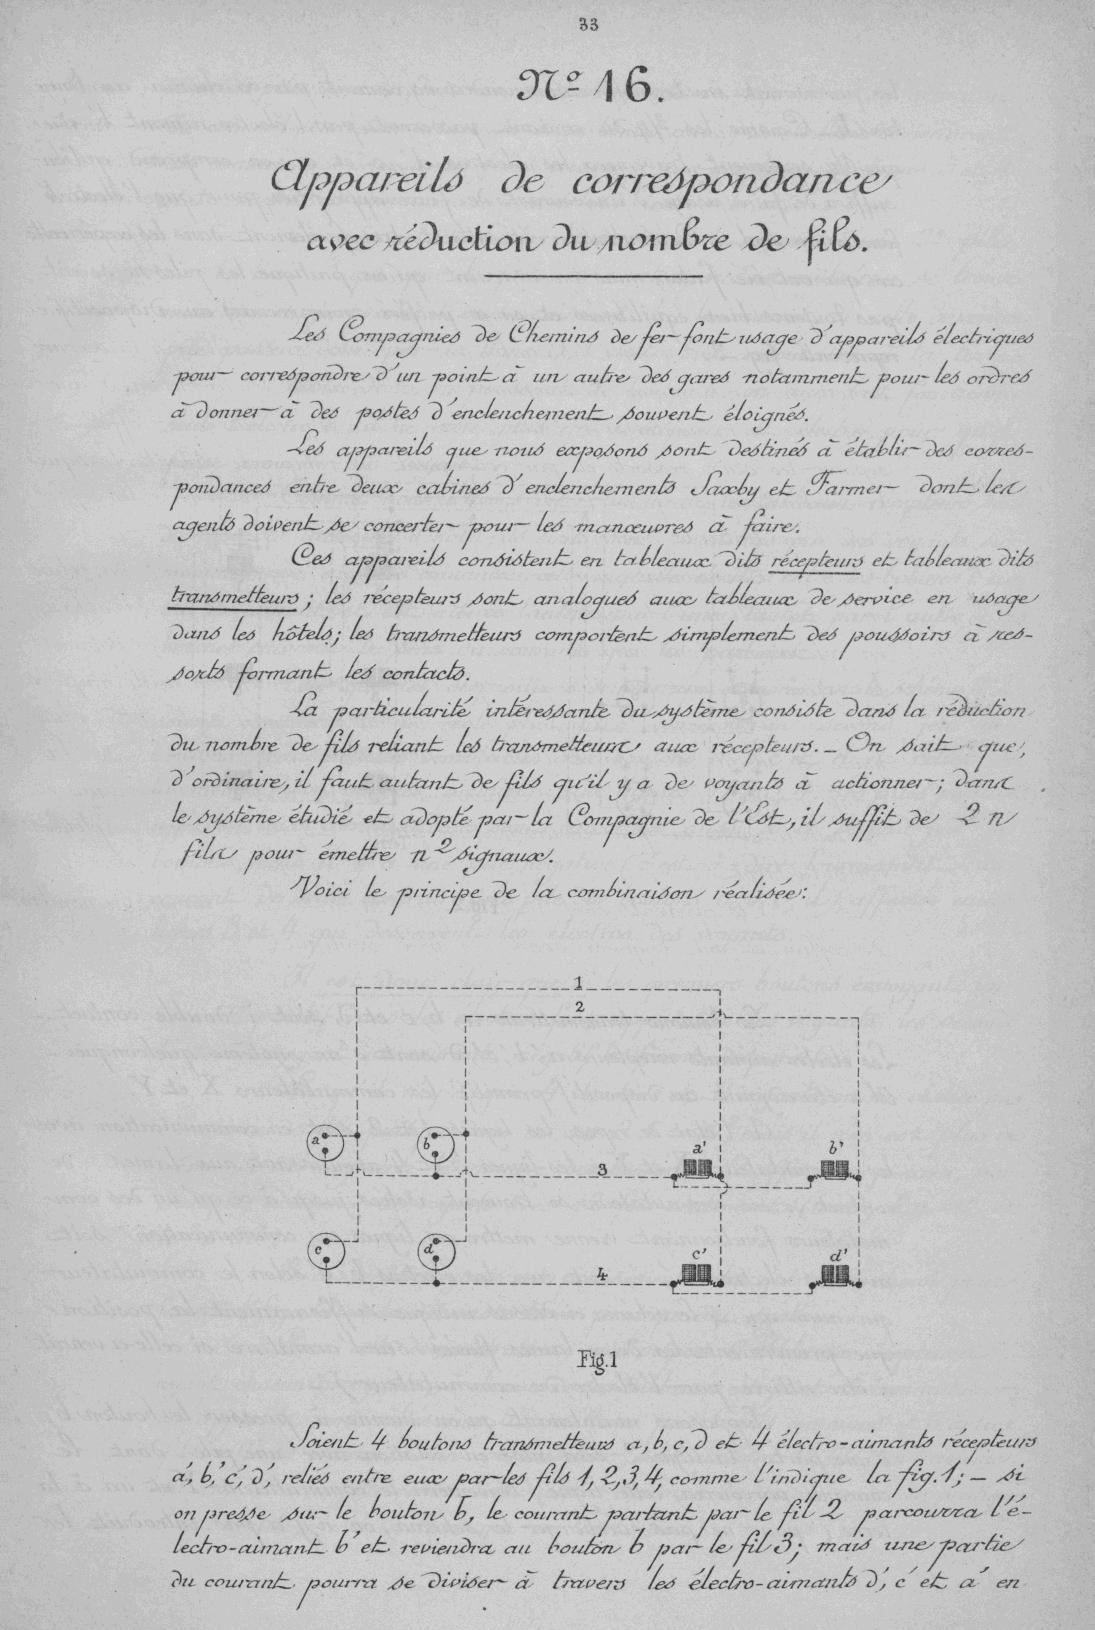 33
Nº 16.
Appareils de correspondance
avec réduction du nombre de fils.
Les Compagnies de Chemins de fer font usage d'appareils électriques
pour correspondre d'un point à un autre des gares notamment pour les ordres
à donner à des postes d'enclenchement souvent éloignés.
Les appareils que nous exposons sont destinés à établir des corres-
pondances entre deux cabines d'enclenchements Saxby et Farmer dont les
agents doivent se concerter pour les manœuvres à faire.
Ces appareils consistent en tableaux dits récepteurs et tableaux dits
transmetteurs; les récepteurs sont analogues aux tableaux de service en usage
dans les hôtels; les transmetteurs comportent simplement des poussoirs à res-
sorts formant les contacts.
La particularité intéressante du système consiste dans la réduction
du nombre de fils reliant les transmetteurs aux récepteurs. — On sait que,
d'ordinaire, il faut autant de fils qu'il y a de voyants à actionner; dans
le système étudié et adopté par la Compagnie de l'Est, il suffit de 2 n
fils pour émettre n² signaux.
Voici le principe de la combinaison réalisée:
1
2
a b a' b'
3
c d c' d'
4
Fig.1
Soient 4 boutons transmetteurs a, b, c, d et 4 électro-aimants récepteurs
a', b', c', d', reliés entre eux par les fils 1, 2, 3, 4, comme l'indique la fig. 1; — si
on presse sur le bouton b, le courant partant par le fil 2 parcourra l'é-
lectro-aimant b' et reviendra au bouton b par le fil 3; mais une partie
du courant pourra se diviser à travers les électro-aimants d', c' et a' en